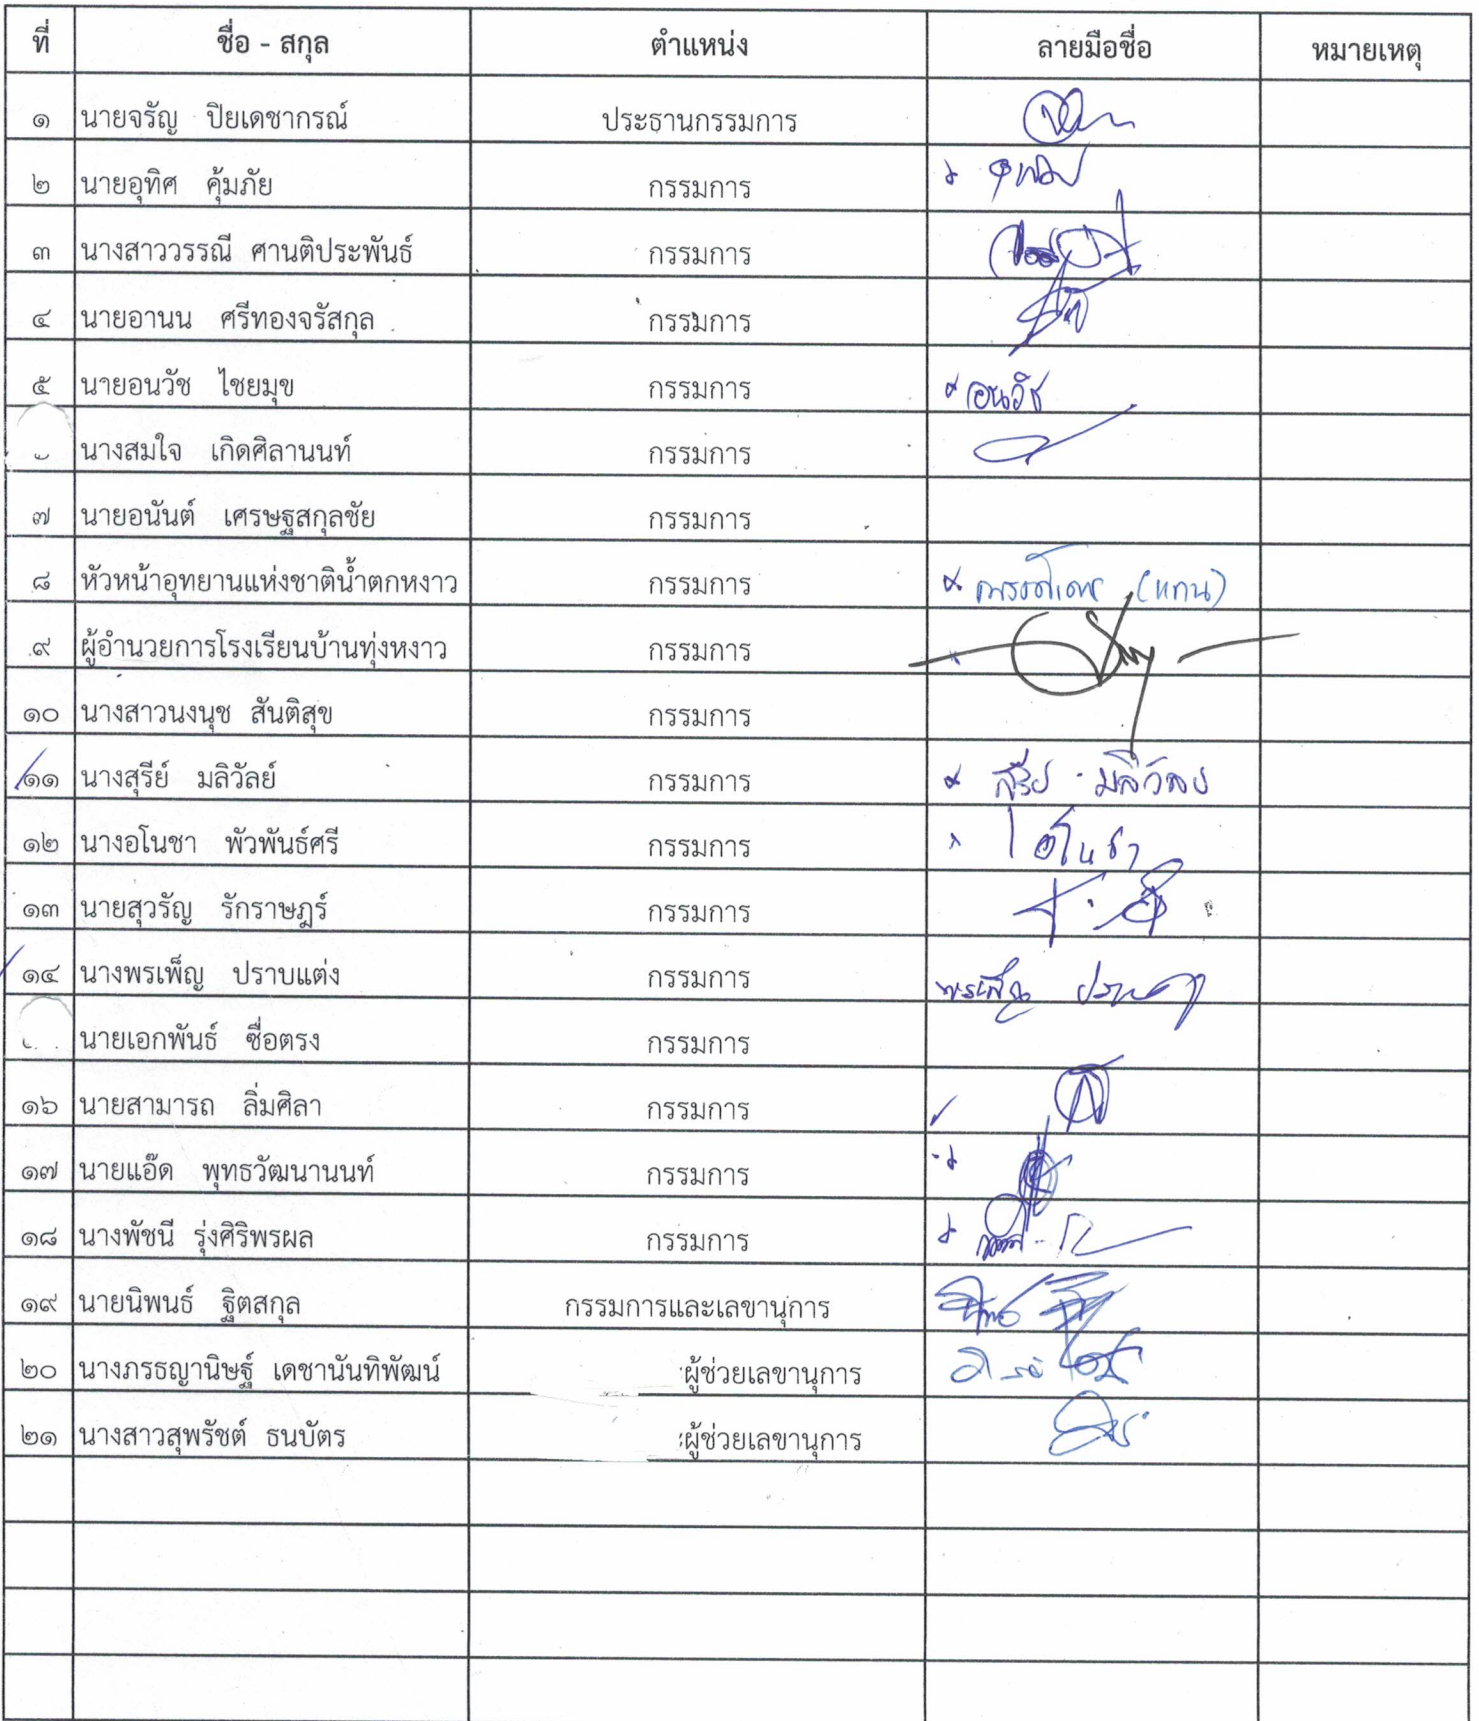 ที่ ชื่อ - สกุล ตำแหน่ง ลายมือชื่อ หมายเหตุ
๑ นายจรัญ ปิยเดชากรณ์ ประธานกรรมการ
๒ นายอุทิศ คุ้มภัย กรรมการ
๓ นางสาววรรณี ศานติประพันธ์ กรรมการ
๔ นายอานน ศรีทองจรัสกุล กรรมการ
๕ นายอนวัช ไชยมุข กรรมการ อนวัช
นางสมใจ เกิดศิลานนท์ กรรมการ
๗ นายอนันต์ เศรษฐสกุลชัย กรรมการ
๘ หัวหน้าอุทยานแห่งชาติน้ำตกหงาว กรรมการ (แทน)
๙ ผู้อำนวยการโรงเรียนบ้านทุ่งหงาว กรรมการ
๑๐ นางสาวนงนุช สันติสุข กรรมการ
๑๑ นางสุรีย์ มลิวัลย์ กรรมการ สุรีย์ มลิวัลย์
๑๒ นางอโนชา พัวพันธ์ศรี กรรมการ อโนชา
๑๓ นายสุวรัญ รักราษฎร์ กรรมการ
๑๔ นางพรเพ็ญ ปราบแต่ง กรรมการ พรเพ็ญ
นายเอกพันธ์ ซื่อตรง กรรมการ
๑๖ นายสามารถ ลิ่มศิลา กรรมการ
๑๗ นายแอ๊ด พุทธวัฒนานนท์ กรรมการ
๑๘ นางพัชนี รุ่งศิริพรผล กรรมการ
๑๙ นายนิพนธ์ ฐิตสกุล กรรมการและเลขานุการ
๒๐ นางภรธญานิษฐ์ เดชานันทิพัฒน์ ผู้ช่วยเลขานุการ
๒๑ นางสาวสุพรัชต์ ธนบัตร ผู้ช่วยเลขานุการ